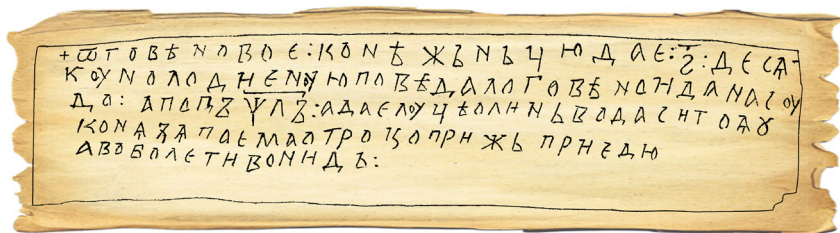 +ѾГОВѢNОВОЄ:КОNѢЖЬNЬЦЮДАЄ:Г҃:ДЕСѦ
КОУNОЛОДИЕNѸЮПОВѢДАЛОГОВѢNОИДАNАСОУ
ДО:АПОПЪѰЛЪ:АДАЄЛОУЦѢОЛИNЬВОДАСИТОДѦȢ
КОNѦЗѦПАЄМЛОТРОЦОПРИЖЬПРИЕДЮ
АВОБОЛЕТИВОNИДЪ: